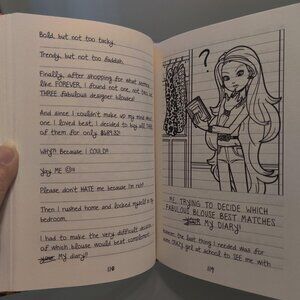 Bold, but not too tacky.
Trendy, but not too faddish.
Finally, after shopping for what seemed
like FOREVER, I found not one, not two, but
THREE fabulous designer blouses!
And since I couldn't make up my mind about
one I loved best, I decided to buy all THREE
of them for only
Why?! Because I COULD!
Yay ME
Please don't HATE me because I'm rich!
Then I rushed home and locked myself in my
bedroom.
I had to make the very difficult decision
of which blouse would best complement
My diary!!
118
?
ME, TRYING TO DECIDE WHICH
FABULOUS BLOUSE BEST MATCHES
MY DIARY!
However, the last thing I needed was for
some CRAZY girl at school to SEE me with
119